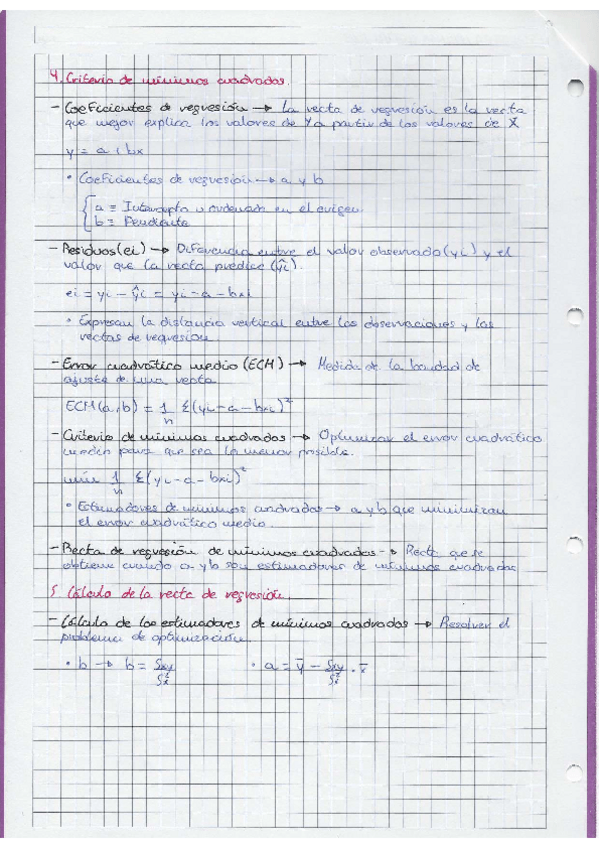 4. Criterio de mínimos cuadrados.
- Coeficientes de regresión → La recta de regresión es la recta
que mejor explica los valores de Y a partir de los valores de X
y = a + bx
• Coeficientes de regresión → a y b
a = Intercepto u ordenada en el origen.
b = Pendiente
- Residuos (ei) → Diferencia entre el valor observado (yi) y el
valor que la recta predice (ŷi).
ei = yi - ŷi = yi - a - bxi
• Expresan la distancia vertical entre las observaciones y las
rectas de regresión
- Error cuadrático medio (ECM) → Medida de la bondad de
ajuste de una recta
ECM (a, b) = 1/n Σ(yi - a - bxi)²
- Criterio de mínimos cuadrados → Optimizar el error cuadrático
medio para que sea lo menor posible.
mín 1/n Σ(yi - a - bxi)²
• Estimadores de mínimos cuadrados → a y b que minimizan
el error cuadrático medio.
- Recta de regresión de mínimos cuadrados → Recta que se
obtiene cuando a y b son estimadores de mínimos cuadrados
5. Cálculo de la recta de regresión
- Cálculo de los estimadores de mínimos cuadrados → Resolver el
problema de optimización.
• b → b = Sxy/S²x • a = ȳ - Sxy/S²x · x̄